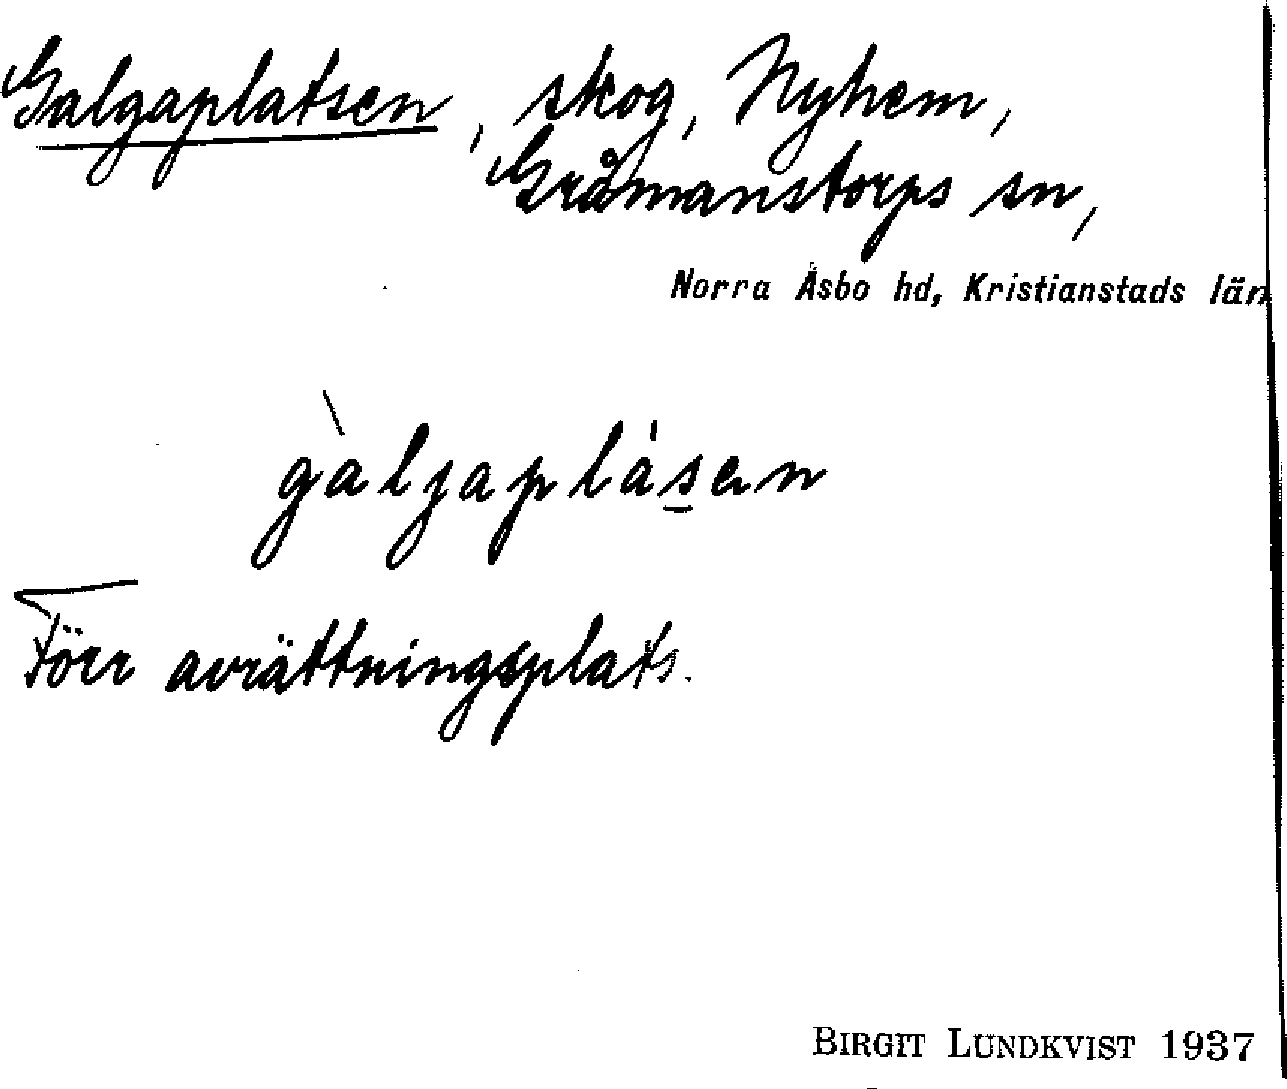 Galgaplatsen, skog, Nyhem,
Gråmanstorps sn,
Norra Åsbo hd, Kristianstads län
gàljaplásen
Förr avrättningsplats.
BIRGIT LUNDKVIST 1937